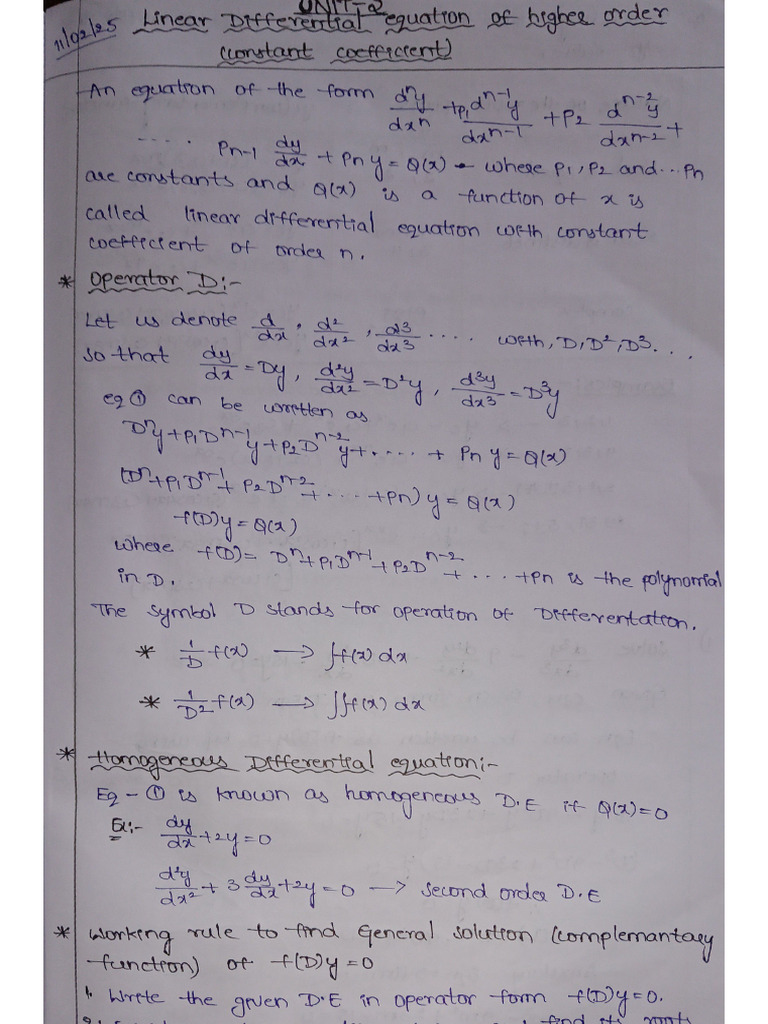 UNIT-2
11/02/25 Linear Differential equation of higher order
(constant coefficient)
An equation of the form dⁿy/dxⁿ + p₁ dⁿ⁻¹y/dxⁿ⁻¹ + P₂ dⁿ⁻²y/dxⁿ⁻² +
.... Pn-1 dy/dx + Pn y = Q(x) - where P₁, P₂ and... Pn
are constants and Q(x) is a function of x is
called linear differential equation with constant
coefficient of order n.
* Operator D:-
Let us denote d/dx, d²/dx², d³/dx³ .... with, D, D², D³...
so that dy/dx = Dy, d²y/dx² = D²y, d³y/dx³ = D³y
eq ① can be written as
Dⁿy + P₁Dⁿ⁻¹y + P₂Dⁿ⁻²y + .... + Pn y = Q(x)
(Dⁿ + P₁Dⁿ⁻¹ + P₂Dⁿ⁻² + .... + Pn) y = Q(x)
f(D)y = Q(x)
where f(D) = Dⁿ + P₁Dⁿ⁻¹ + P₂Dⁿ⁻² + .... + Pn is the polynomial
in D.
The symbol D stands for operation of Differentation.
* 1/D f(x) → ∫f(x) dx
* 1/D² f(x) → ∫∫f(x) dx
* Homogeneous Differential equation:-
Eq - ① is known as homogeneous D.E if Q(x) = 0
Ex:- dy/dx + 2y = 0
d²y/dx² + 3 dy/dx + 2y = 0 → second order D.E
* Working rule to find General solution (complemantary
function) of f(D)y = 0
1. Write the given D.E in operator form f(D)y = 0.
find its roots